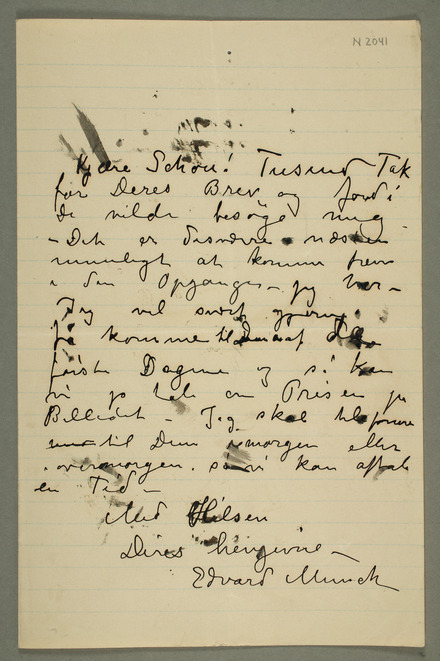 N 2041
Kjære Schou! Tusind Tak
for Deres Brev og fordi
De vilde besøge mig
– Det er desværre næsten
umuligt at komme frem
i den Opgangen – jeg
Jeg vil svært gjerne
få komme til Dem af de
første Dagene og så kan
vi jo tale om Prisen på
Billedet – Jeg skal telefonere
til Dem imorgen eller
overmorgen, så vi kan aftale
en Tid –
Med Hilsen
Deres hengivne –
Edvard Munch